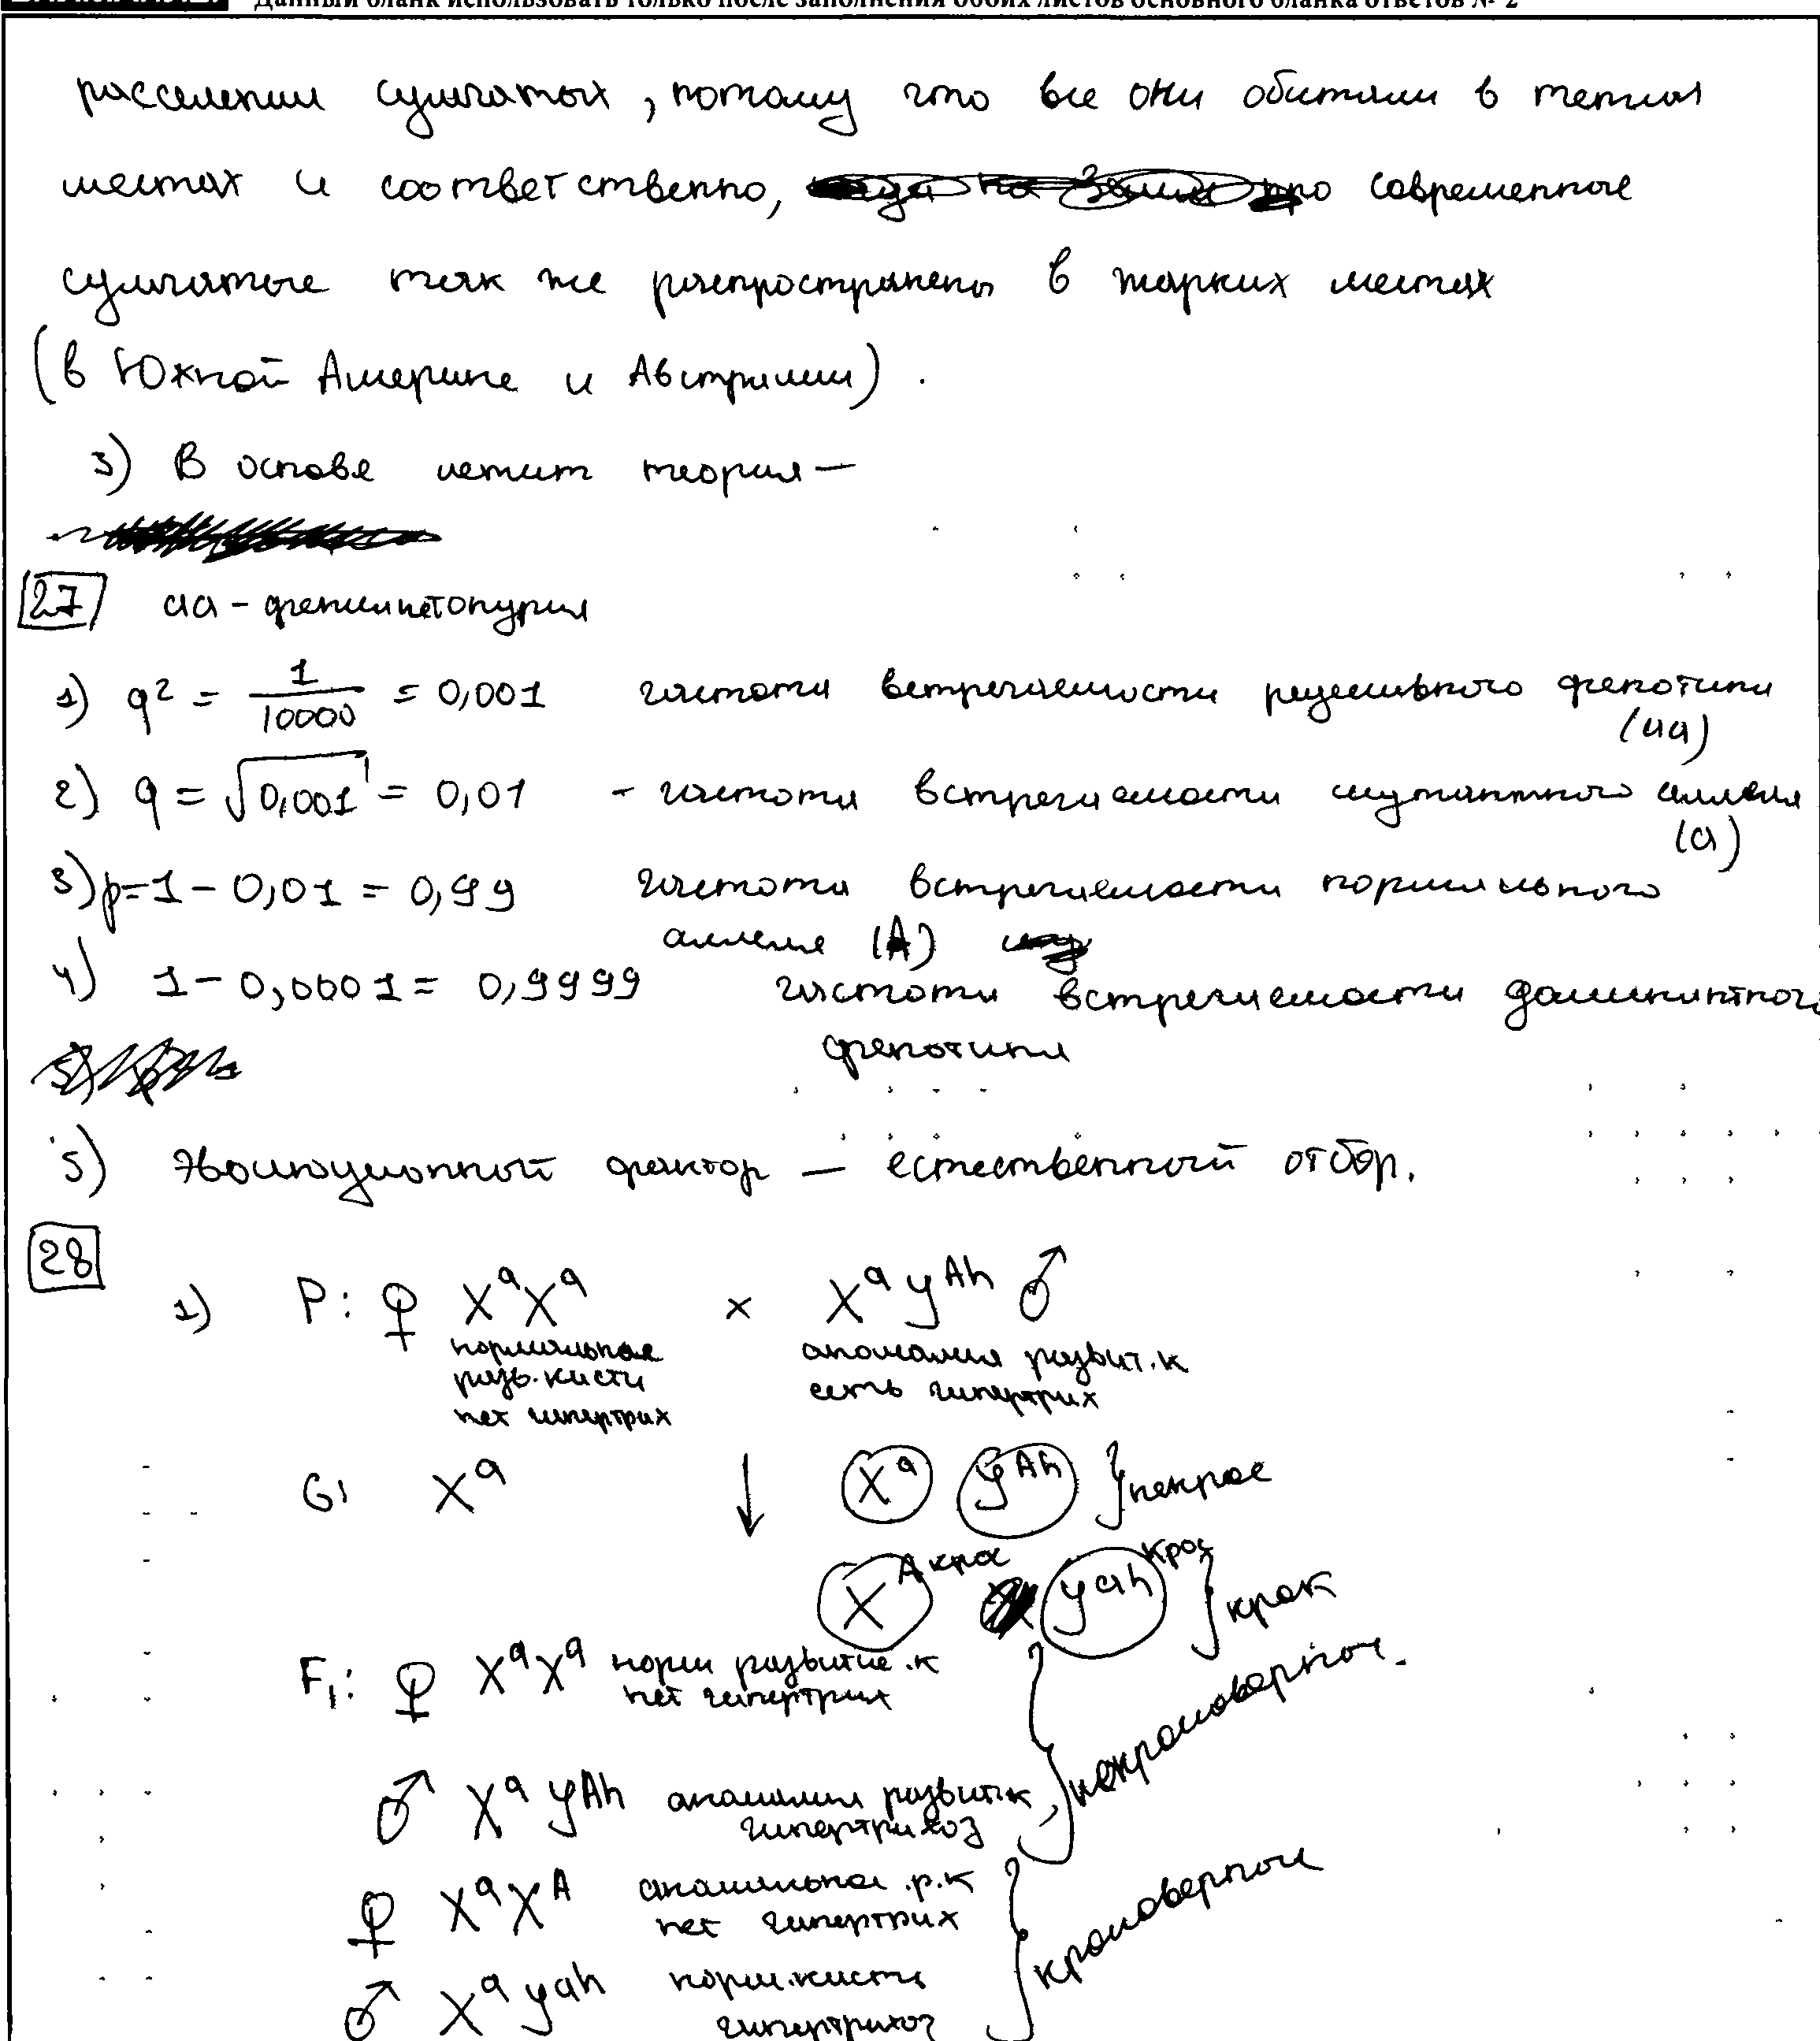 Данный бланк использовать только после заполнения обоих листов основного бланка ответов № 2
расселении сумчатых, потому что все они обитали в теплых
местах и соответственно, современные
сумчатые так же распространены в жарких местах
(в Южной Америке и Австралии).
3) В основе лежит теория —
27 aa - фенилкетонурия
1) q² = 1/10000 = 0,001 частота встречаемости рецессивного фенотипа
(aa)
2) q = √0,001 = 0,01 - частота встречаемости мутантного аллеля
(a)
3) p=1-0,01 = 0,99 частота встречаемости нормального
аллеля (A)
4) 1-0,0001= 0,9999 частота встречаемости доминантного
фенотипа
5) Эволюционный фактор — естественный отбор.
28
1) P: ♀ XᵃXᵃ × XᵃYᴬʰ ♂
нормальное аномалия развит.к
разв.кисти есть гипертрих
нет гипертрих
G: Xᵃ ↓ Xᵃ Yᴬʰ } некрос
Xᴬ крос Yᵃʰ крос } крос
F₁: ♀ XᵃXᵃ норм развитие.к
нет гипертрих
♂ XᵃYᴬʰ аномалия развит.к
гипертрихоз
} некроссоверные.
♀ XᵃXᴬ аномальное.р.к
нет гипертрих
♂ XᵃYᵃʰ норм.кисть
гипертрихоз
} кроссоверные